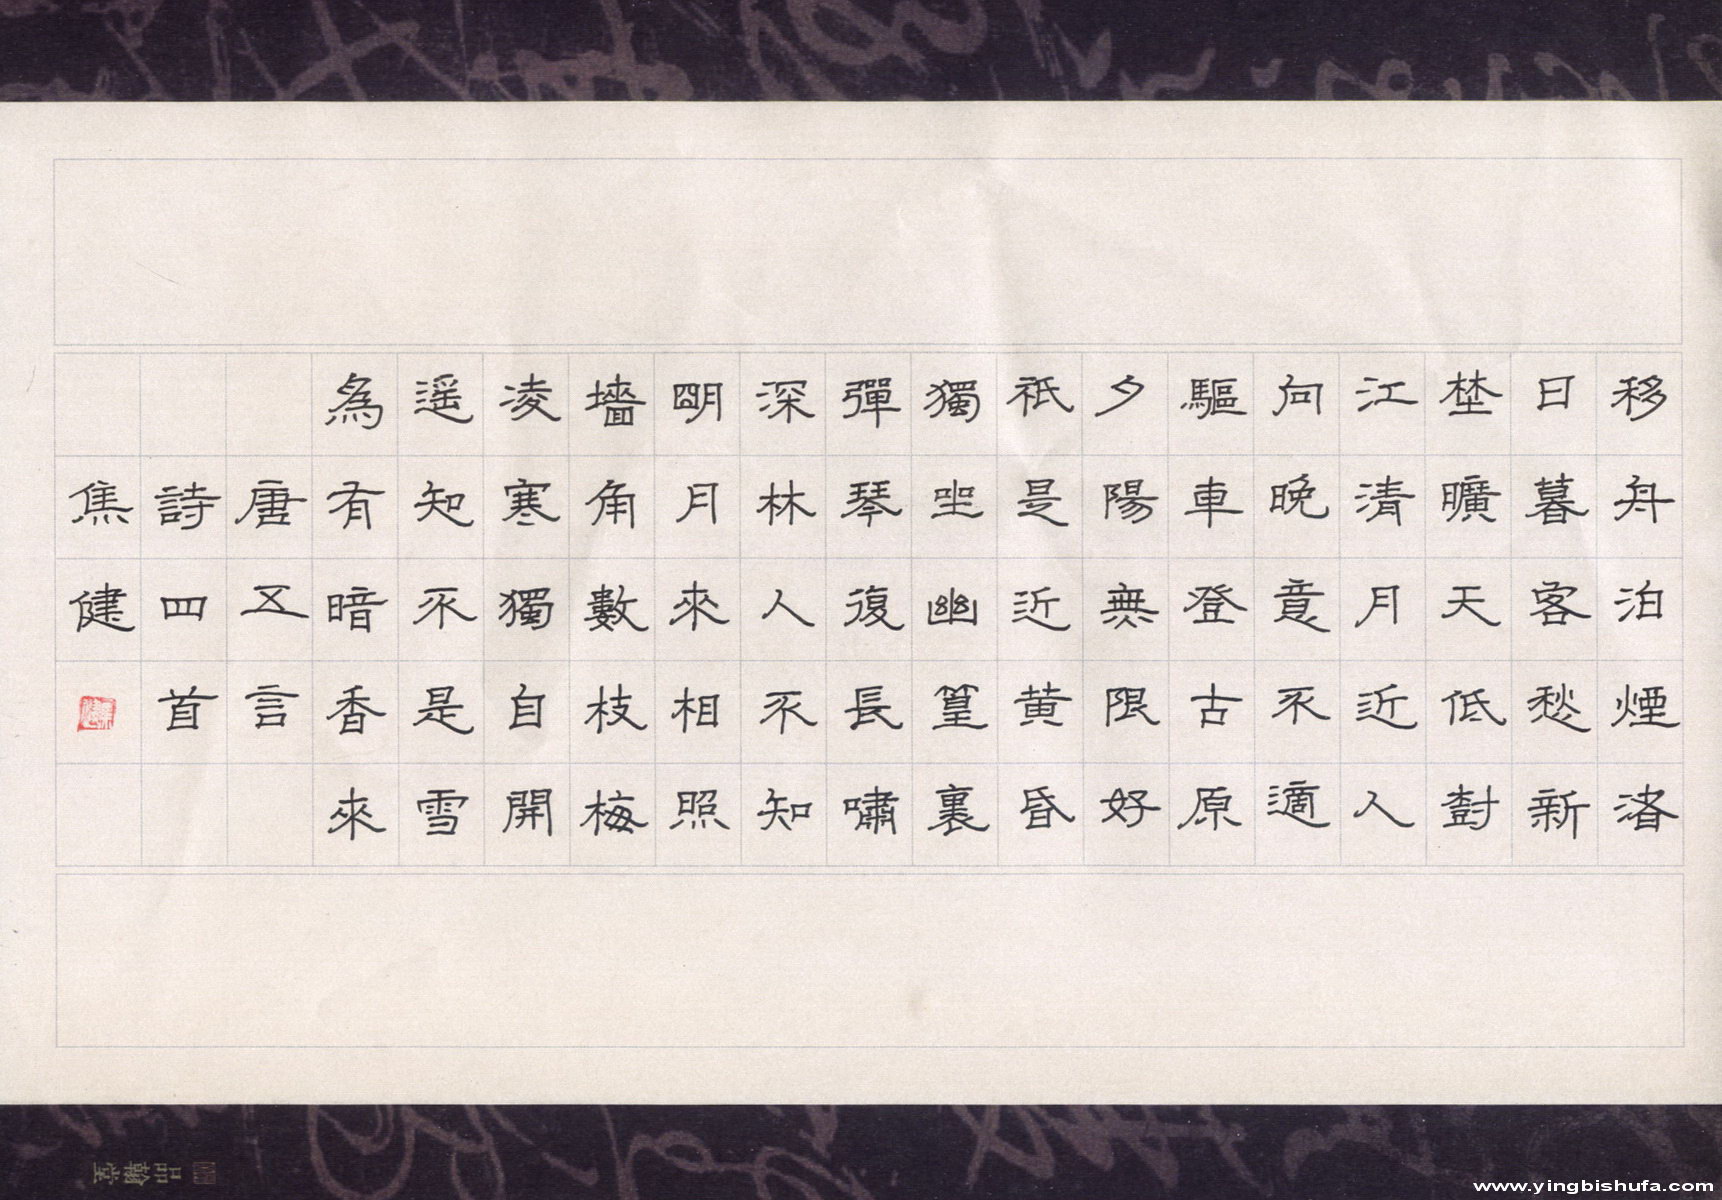 移舟泊煙渚
日暮客愁新
埜曠天低尌
江清月近人
向晚意不適
驅車登古原
夕陽無限好
祇是近黄昏
獨坐幽篁裏
彈琴復長嘯
深林人不知
明月來相照
墻角數枝梅
凌寒獨自開
遥知不是雪
為有暗香來
唐五言
詩四首
焦健
品翰堂
www.yingbishufa.com